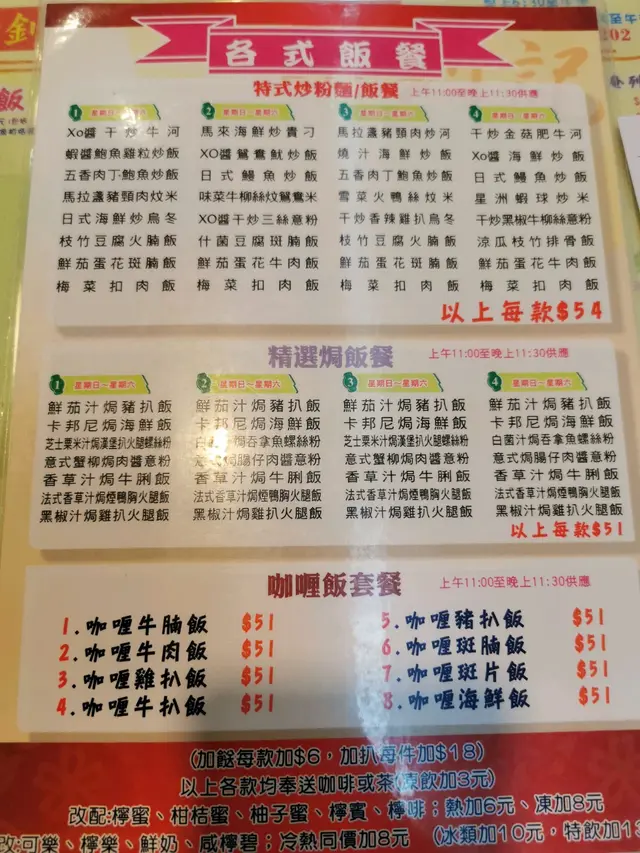 各式飯餐
特式炒粉麵/飯餐 上午11:00至晚上11:30供應
1 星期日~星期六
Xo醬干炒牛河
蝦醬鮑魚雞粒炒飯
五香肉丁鮑魚炒飯
馬拉盞豬頸肉炆米
日式海鮮炒烏冬
枝竹豆腐火腩飯
鮮茄蛋花斑腩飯
梅菜扣肉飯
2 星期日~星期六
馬來海鮮炒貴刁
XO醬鴛鴦魷炒飯
日式鰻魚炒飯
味菜牛柳絲炆鴛鴦米
XO醬干炒三絲意粉
什菌豆腐斑腩飯
鮮茄蛋花牛肉飯
梅菜扣肉飯
3 星期日~星期六
馬拉盞豬頸肉炒河
燒汁海鮮炒飯
五香肉丁鮑魚炒飯
雪菜火鴨絲炆米
干炒香辣雞扒烏冬
枝竹豆腐火腩飯
鮮茄蛋花斑腩飯
梅菜扣肉飯
4 星期日~星期六
干炒金菇肥牛河
Xo醬海鮮炒飯
日式鰻魚炒飯
星洲蝦球炒米
干炒黑椒牛柳絲意粉
涼瓜枝竹排骨飯
鮮茄蛋花牛肉飯
梅菜扣肉飯
以上每款$54
精選焗飯餐 上午11:00至晚上11:30供應
1 星期日~星期六
鮮茄汁焗豬扒飯
卡邦尼焗海鮮飯
芝士粟米汁焗漢堡扒火腿螺絲粉
意式蟹柳焗肉醬意粉
香草汁焗牛脷飯
法式香草汁焗煙鴨胸火腿飯
黑椒汁焗雞扒火腿飯
2 星期日~星期六
鮮茄汁焗豬扒飯
卡邦尼焗海鮮飯
白菌汁焗吞拿魚螺絲粉
意式焗腸仔肉醬意粉
香草汁焗牛脷飯
法式香草汁焗煙鴨胸火腿飯
黑椒汁焗雞扒火腿飯
3 星期日~星期六
鮮茄汁焗豬扒飯
卡邦尼焗海鮮飯
芝士粟米汁焗漢堡扒火腿螺絲粉
意式蟹柳焗肉醬意粉
香草汁焗牛脷飯
法式香草汁焗煙鴨胸火腿飯
黑椒汁焗雞扒火腿飯
4 星期日~星期六
鮮茄汁焗豬扒飯
卡邦尼焗海鮮飯
白菌汁焗吞拿魚螺絲粉
意式焗腸仔肉醬意粉
香草汁焗牛脷飯
法式香草汁焗煙鴨胸火腿飯
黑椒汁焗雞扒火腿飯
以上每款$51
咖喱飯套餐 上午11:00至晚上11:30供應
1.咖喱牛腩飯 $51
2.咖喱牛肉飯 $51
3.咖喱雞扒飯 $51
4.咖喱牛扒飯 $51
5.咖喱豬扒飯 $51
6.咖喱斑腩飯 $51
7.咖喱斑片飯 $51
8.咖喱海鮮飯 $51
(加餸每款加$6，加扒每件加$18)
以上各款均奉送咖啡或茶(凍飲加3元)
改配:檸蜜、柑桔蜜、柚子蜜、檸賓、檸啡；熱加6元、凍加8元
改:可樂、檸樂、鮮奶、咸檸碧；冷熱同價加8元 (冰類加10元，特飲加13